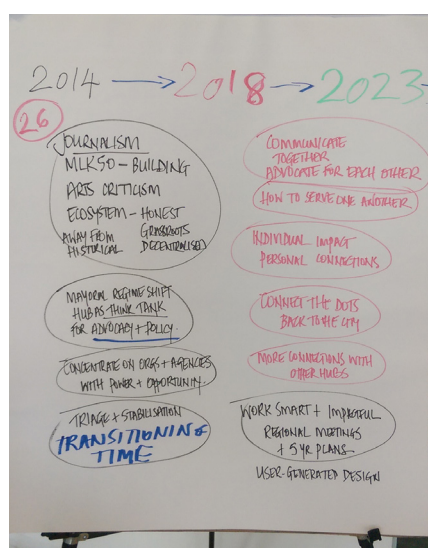 2014 → 2018 → 2023 →
26
JOURNALISM
MLK50 – BUILDING
ARTS CRITICISM
ECOSYSTEM – HONEST
AWAY FROM GRASSROOTS
HISTORICAL DECENTRALISED
MAYORAL REGIME SHIFT
HUB AS THINK TANK
FOR ADVOCACY + POLICY.
CONCENTRATE ON ORGS + AGENCIES
WITH POWER + OPPORTUNITY
TRIAGE + STABILISATION
TRANSITIONING
TIME
COMMUNICATE
TOGETHER
ADVOCATE FOR EACH OTHER
HOW TO SERVE ONE ANOTHER
INDIVIDUAL IMPACT
PERSONAL CONNECTIONS
CONNECT THE DOTS
BACK TO THE CITY
MORE CONNECTIONS WITH
OTHER HUBS
WORK SMART + IMPACTFUL
REGIONAL MEETINGS
+ 5 YR PLANS
USER-GENERATED DESIGN